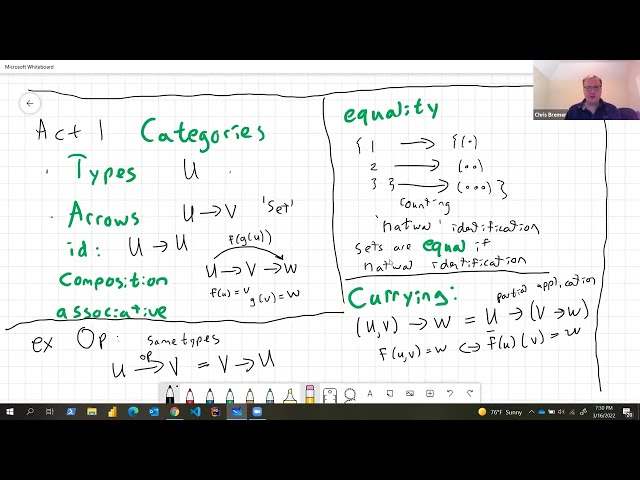 Microsoft Whiteboard
Chris Bremer
Act 1 Categories
Types U
Arrows U → V 'Set'
id: U → U
f(g(u))
Composition U → V → W
f(u) = v g(v) = w
associative
ex Op: same types
U →op V = V → U
equality
{ 1 → {(•)
2 → (••)
3 } → (•••) }
counting
'natural' identification
sets are equal if
natural identification
Currying: partial application
(U,V) → W = U → (V → W)
f(u,v) = w ↔ f(u)(v) = w
76°F Sunny
7:30 PM
3/16/2022
20